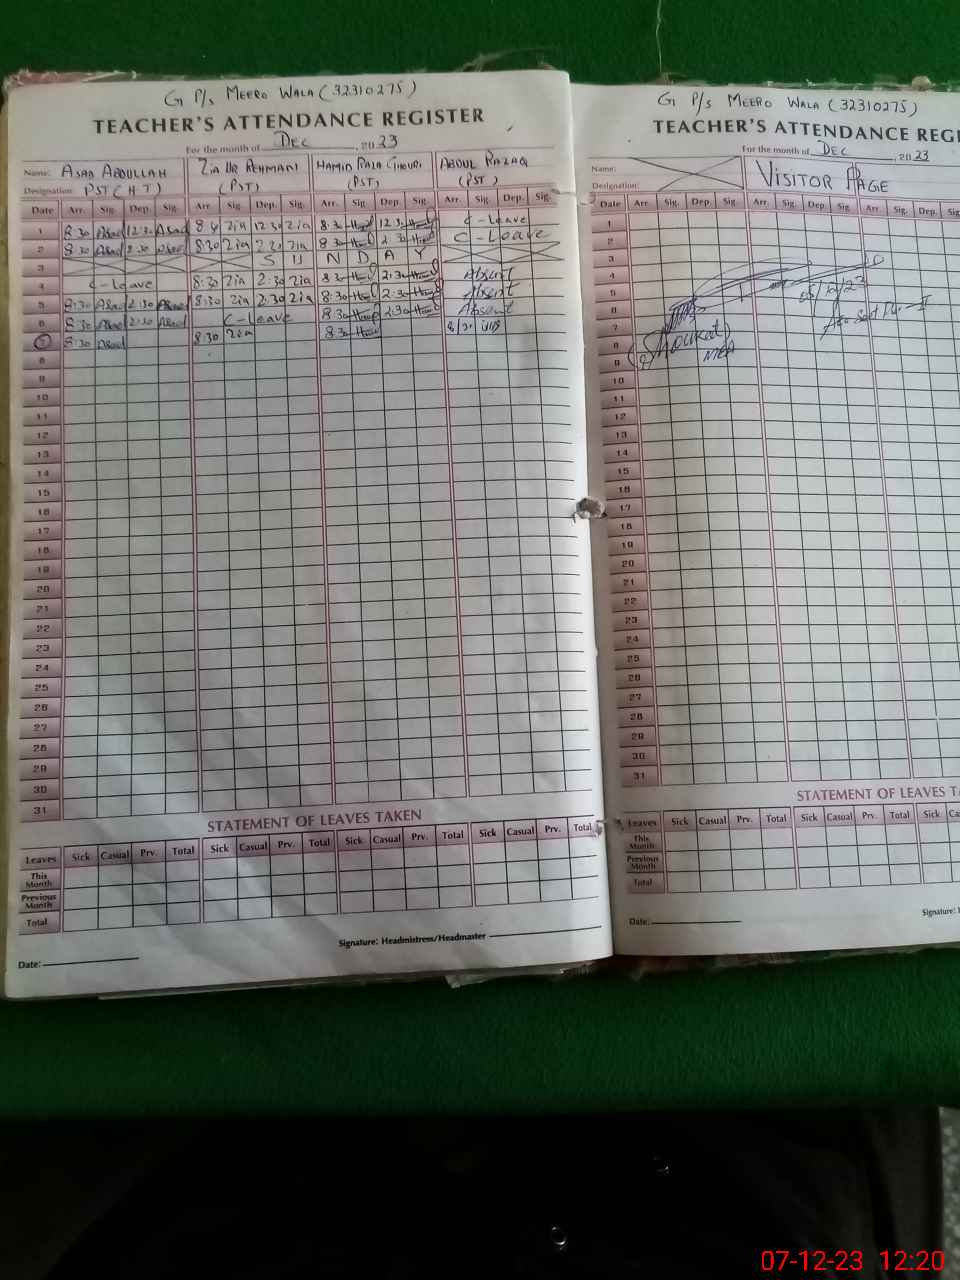 G P/s MEERO WALA (32310275)
TEACHER'S ATTENDANCE REGISTER
For the month of DEC, 2023
Name: ASAD ABDULLAH ZIA UR REHMAN HAMID RAZA GHOURI ABDUL RAZAQ
Designation: PST (H.T) (PST) (PST) (PST)
Date Arr. Sig. Dep. Sig. Arr. Sig. Dep. Sig. Arr. Sig. Dep. Sig. Arr. Sig. Dep. Sig.
1 8:30 Asad 12:30 Asad Zia 12:30 Zia 8:30 12:30 C-Leave
2 8:30 Asad 2:30 Asad 8:30 Zia Zia 8:30 2:30 C-Leave
3 S U N D A Y
4 C-Leave 8:30 Zia 2:30 Zia 8:30 2:30 Absent
5 8:30 Asad 2:30 Asad 8:30 Zia 2:30 Zia 8:30 2:30 Absent
6 8:30 Asad 2:30 Asad C-Leave 8:30 2:30 Absent
7 8:30 Asad 8:30 Zia 8:30
8
9
10
11
12
13
14
15
16
17
18
19
20
21
22
23
24
25
26
27
28
29
30
31
STATEMENT OF LEAVES TAKEN
Leaves Sick Casual Prv. Total Sick Casual Prv. Total Sick Casual Prv. Total Sick Casual Prv. Total
This Month
Previous Month
Total
Signature: Headmistress/Headmaster
Date:
G P/S MEERO WALA (32310275)
TEACHER'S ATTENDANCE REGI
For the month of DEC 2023
Name:
Designation: VISITOR PAGE
Date Arr. Sig. Dep. Sig. Arr. Sig. Dep. Sig. Arr. Sig.
1
2
3
4
5 05/12/23
6
7
8 (Shoukat)
9 MEA
10
11
12
13
14
15
16
17
18
19
20
21
22
23
24
25
26
27
28
29
30
31
STATEMENT OF LEAVES TA
Leaves Sick Casual Prv. Total Sick Casual Prv. Total Sick Ca
This Month
Previous Month
Total
Date:
Signature:
07-12-23 12:20